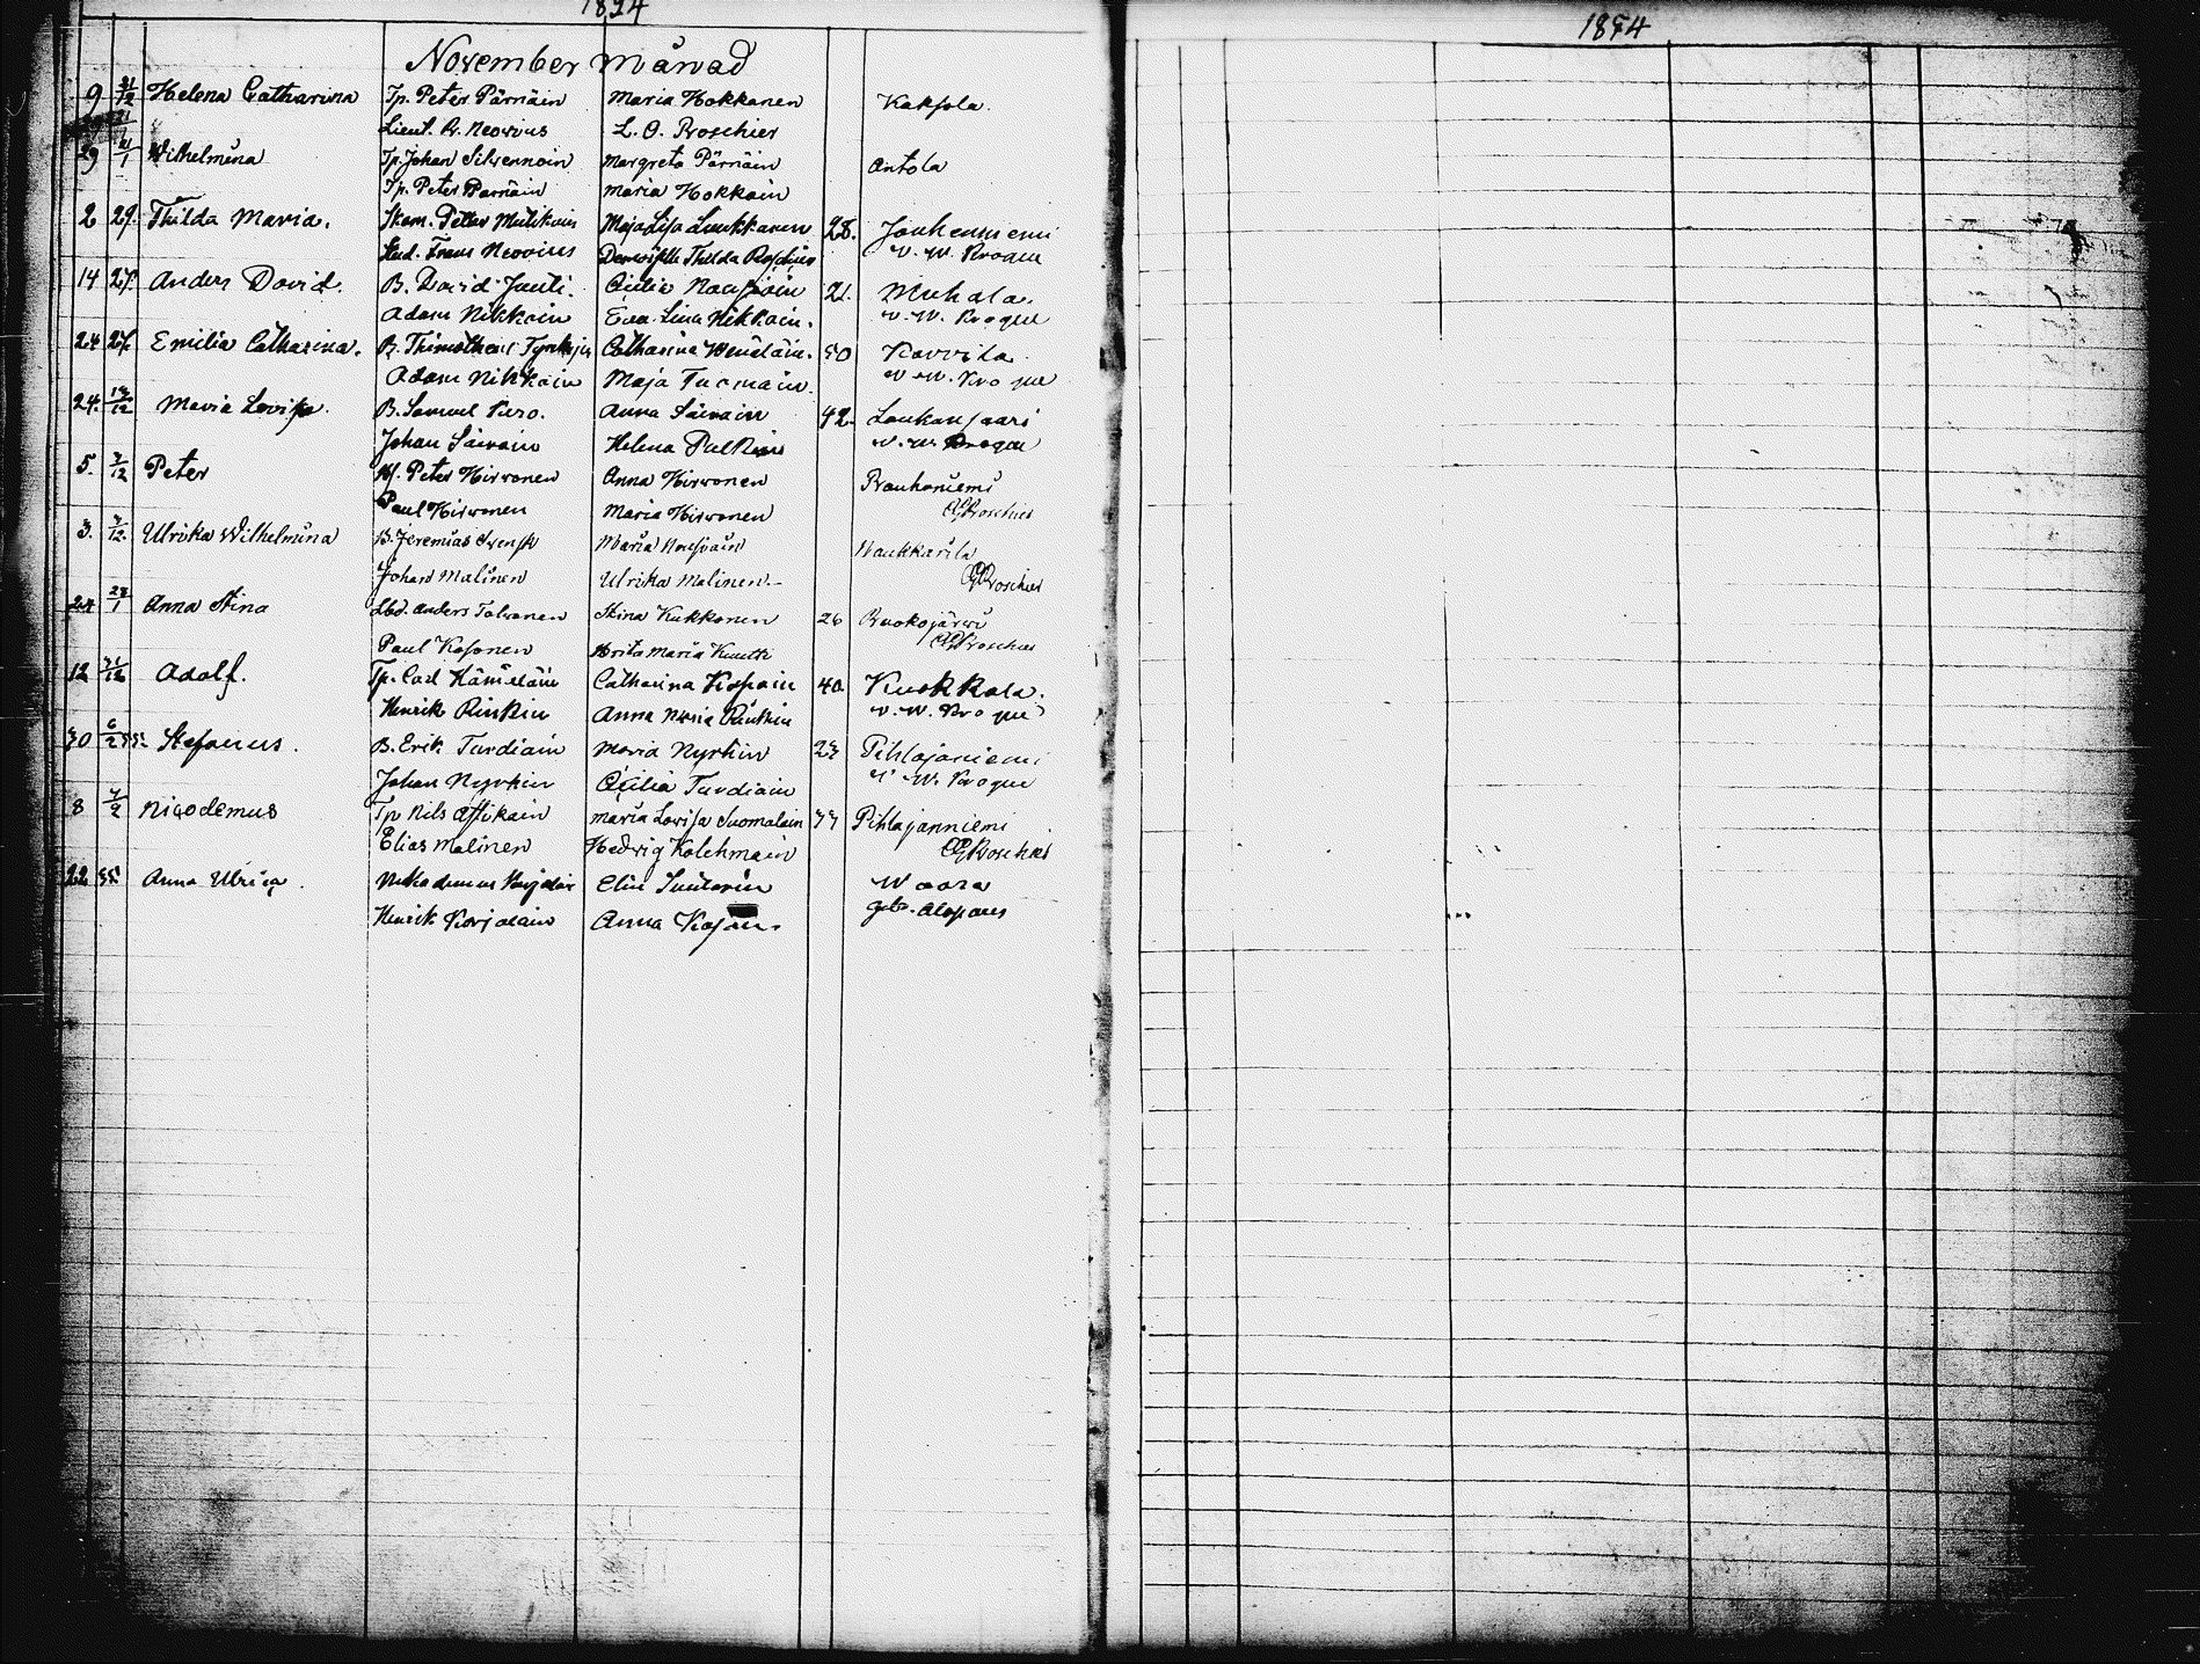 1854
1854
November månad
9 31/12 Helena Catharina Tp. Peter Pärnäin Maria Hokkanen Kaksola.
Lieut. R. Neovius L. O. Roschier
29 Wilhelmina Tp. Johan Silvennoin Margreta Pärnäin Antola
Tp. Peter Pärnäin Maria Hokkain
2 29. Thilda Maria. Petter Maja Lisa Luukkanen 28. Jouhenniemi
Stud. Frans Neovius Thilda Roschier v. W. Kroque
14 27. Anders David. B. David Juuti. Cecilia Nousiain 21. Muhala.
Adam Nikkain Eva Lina Nikkain. v. W. Kroque
24 27. Emilia Catharina. B. Thimotheus Catharina Wenäläin. 30 Karvila.
Adam Nikkain Maja Tuomain v. W. Kroque
24. Maria Lovisa. B. Samuel Puro. Anna Säiväin 42. Loukansaari
Johan Säiväin Helena Pulkkin v. W. Kroque
5. 3/12 Peter Peter Hirvonen Anna Hirvonen Rauhaniemi
Paul Hirvonen Maria Hirvonen OGRoschier
3. 3/12. Ulrika Wilhelmina B. Jeremias Svensk Maria Nousiain Naukkarila
Johan Malinen Ulrika Malinen. OGRoschier
24 28/1 Anna Stina Lbd. Anders Tolvanen Stina Kukkonen 26 Ruokojärvi
Paul Kosonen Brita Maria Kuutti OGRoschier
12 31/12 Adolf. Tp. Carl Hämäläin Catharina 40. Kuokkala.
Henrik Rinkin Anna Maria Rinkin v. W. Kroque
30 6/2 55. Stefanus. B. Erik Turdiain Maria Nyrkin 23 Pihlajaniemi
Johan Nyrkin Cecilia Turdiain v. W. Kroque
8 Nicodemus Tp Nils Attikain Maria Lovisa Suomalain 33 Pihlajanniemi
Elias Malinen Hedvig Kolehmain OGRoschier
22 55. Anna Ulrica. Nikodemus Karjalain Elin Suutarin Waara
Henrik Karjalain Anna Kosoin. Alopaeus